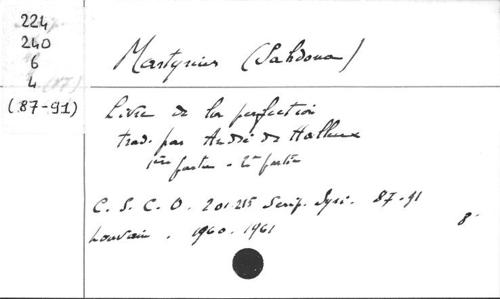 224
240
6
4
(87-91)
Martyrius (Sahdona)
Livre de la perfection
trad. par André de Halleux
1ère partie - 2e partie
C. S. C. O. 201-215 Scrip. Syri. 87-91
Louvain. 1960-1961
8°